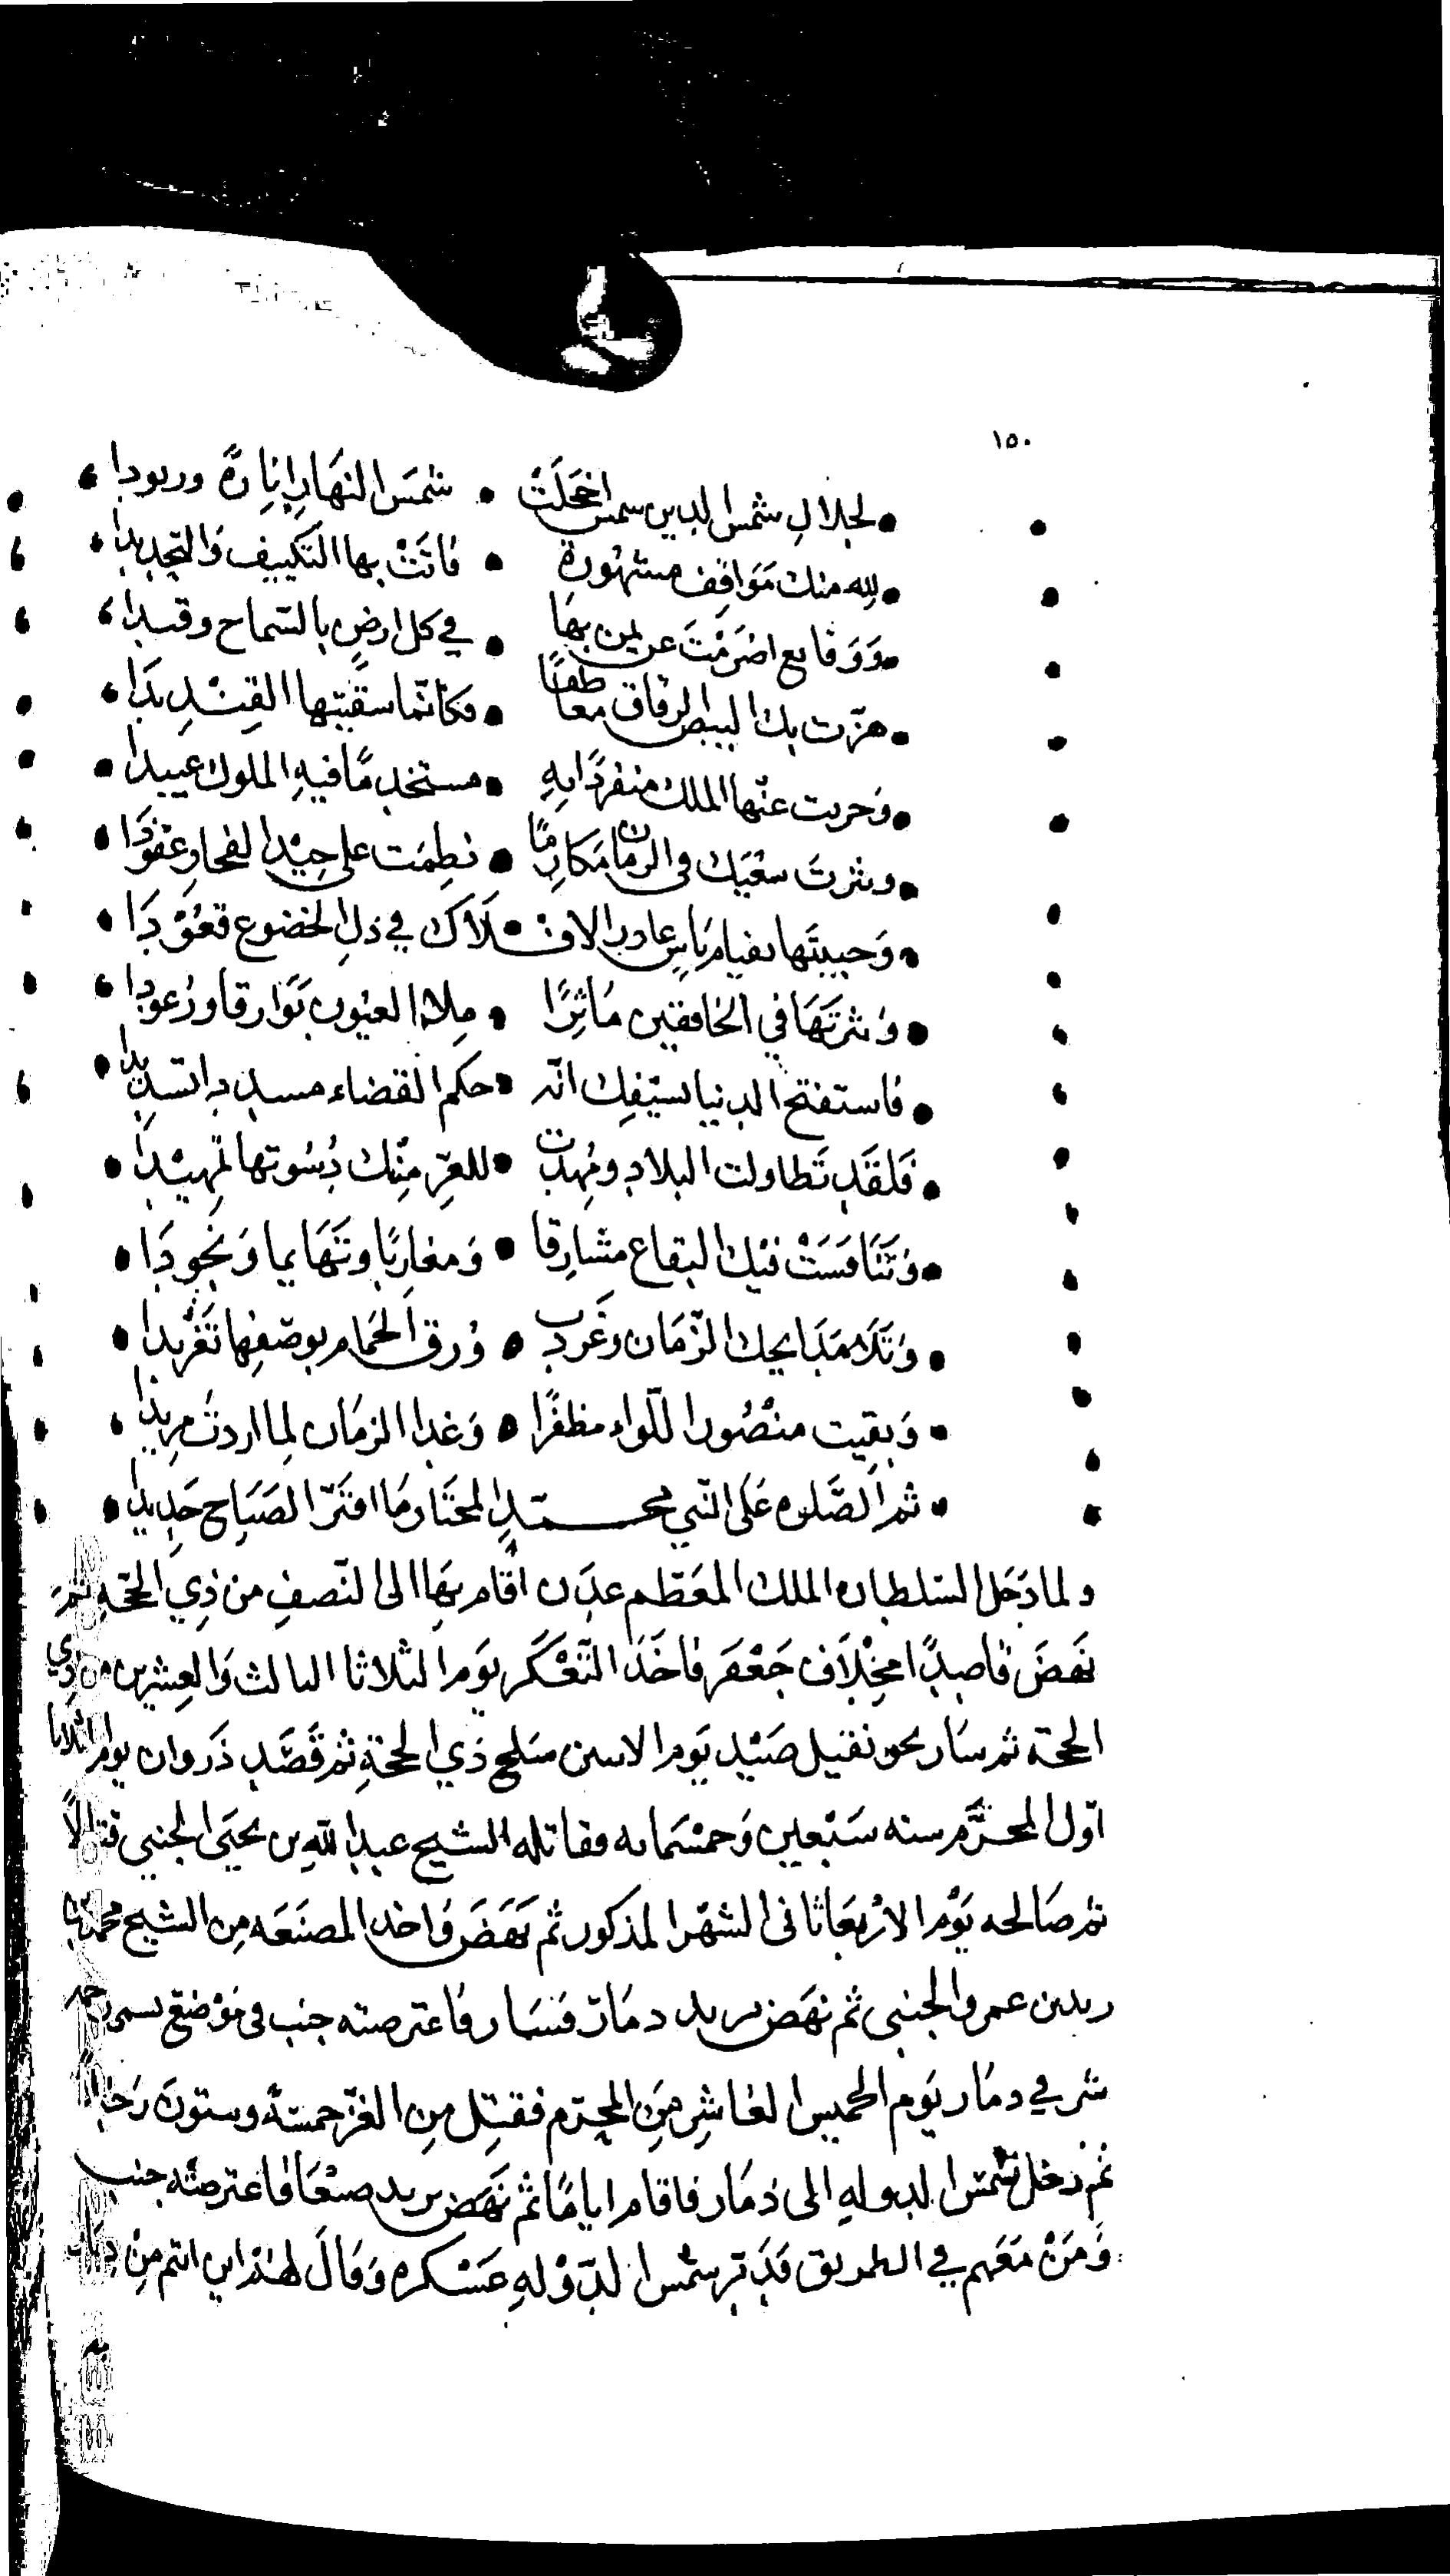 ١٥٠
لجلال شمس الدين شمس اخجلت • شمس النهار انارة
لله منك مواقف مشهورة • فاتت بها التكييف والتحديدا
ووقايع اضرمت عن يمن بها • في كل ارض بالسماح وقيدا
هزت بك البيض الرقاق معاطفا • فكأنما سقيتها القنديدا
وحويت عنها الملك منفردا به • مستخدما فيه الملوك عبيدا
ونثرت سعيك في الزمان مكارما • نظمت على جيد الفخار عقودا
بقيام باس غادر الافلاك في ذل الخضوع قعودا
ونثرتها في الخافقين مآثرا • ملأ العيون بوارقا ورعودا
فاستفتح الدنيا بسيفك انه • حكم القضاء مسددا تسديدا
فلقد تطاولت البلاد ومهدت • للعز منك دسوتها تمهيدا
وتنافست فيك البقاع مشارقا • ومغاربا وتهايما ونجودا
وتلا مدايحك الزمان وغردت • ورق الحمام بوصفها تغريدا
وبقيت منصور اللواء مظفرا • وغدا الزمان لما اردت مريدا
ثم الصلوه على النبي محمد المختار ما افتر الصباح جديدا
ولما دخل السلطان الملك المعظم عدن اقام بها الى النصف من ذي الحجة ثم
نهض قاصدا مخلاف جعفر فاخذ التعكر يوم الثلاثا الثالث والعشرين من ذي
الحجة ثم سار نحو نقيل صيد يوم الاثنين سلخ ذي الحجة ثم قصد ذروان يوم الثلاثا
اول المحرم سنه سبعين وخمسمايه فقاتله الشيخ عبد الله بن يحيى الجنبي قتالا
ثم صالحه يوم الاربعا ثاني الشهر المذكور ثم نهض واخذ المصنعه من الشيخ محمد بن
زيد بن عمرو الجنبي ثم نهض يريد ذمار فسار فاعترضته جنب في موضع يسمى رخمه
شرقي ذمار يوم الخميس العاشر من المحرم فقتل من الغز خمسة وستون رجلا
ثم دخل شمس الدوله الى ذمار فاقام اياما ثم نهض يريد صنعا فاعترضته جنب
ومن معهم في الطريق شمس الدوله عسكره وقال لهم اين انتم من ديار
مصر